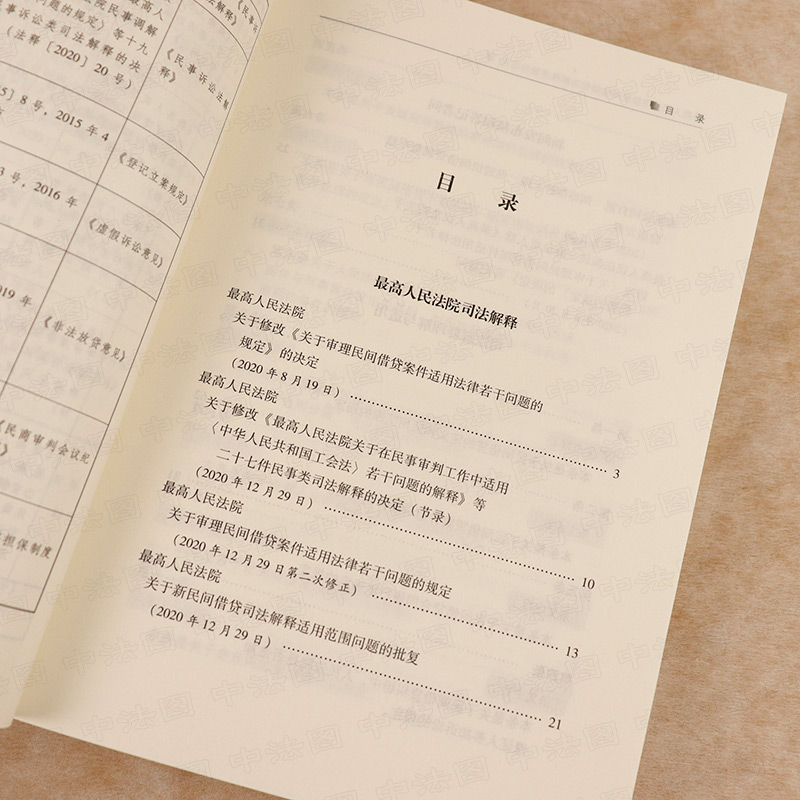 最高人
院民事调解
问题的规定》等十九
事诉讼类司法解释的决
（法释［2020］20号）
《民事诉讼法解
释》
5］8号，2015年4
《登记立案规定》
3号，2016年
《虚假诉讼意见》
019年
《非法放贷意见》
《民商审判会议纪
担保制度
目 录
目 录
最高人民法院司法解释
最高人民法院
关于修改《关于审理民间借贷案件适用法律若干问题的
规定》的决定
（2020年8月19日）……………………………… 3
最高人民法院
关于修改《最高人民法院关于在民事审判工作中适用
〈中华人民共和国工会法〉若干问题的解释》等
二十七件民事类司法解释的决定（节录）
（2020年12月29日）……………………………… 10
最高人民法院
关于审理民间借贷案件适用法律若干问题的规定
（2020年12月29日第二次修正）……………………… 13
最高人民法院
关于新民间借贷司法解释适用范围问题的批复
（2020年12月29日）……………………………… 21
中法图